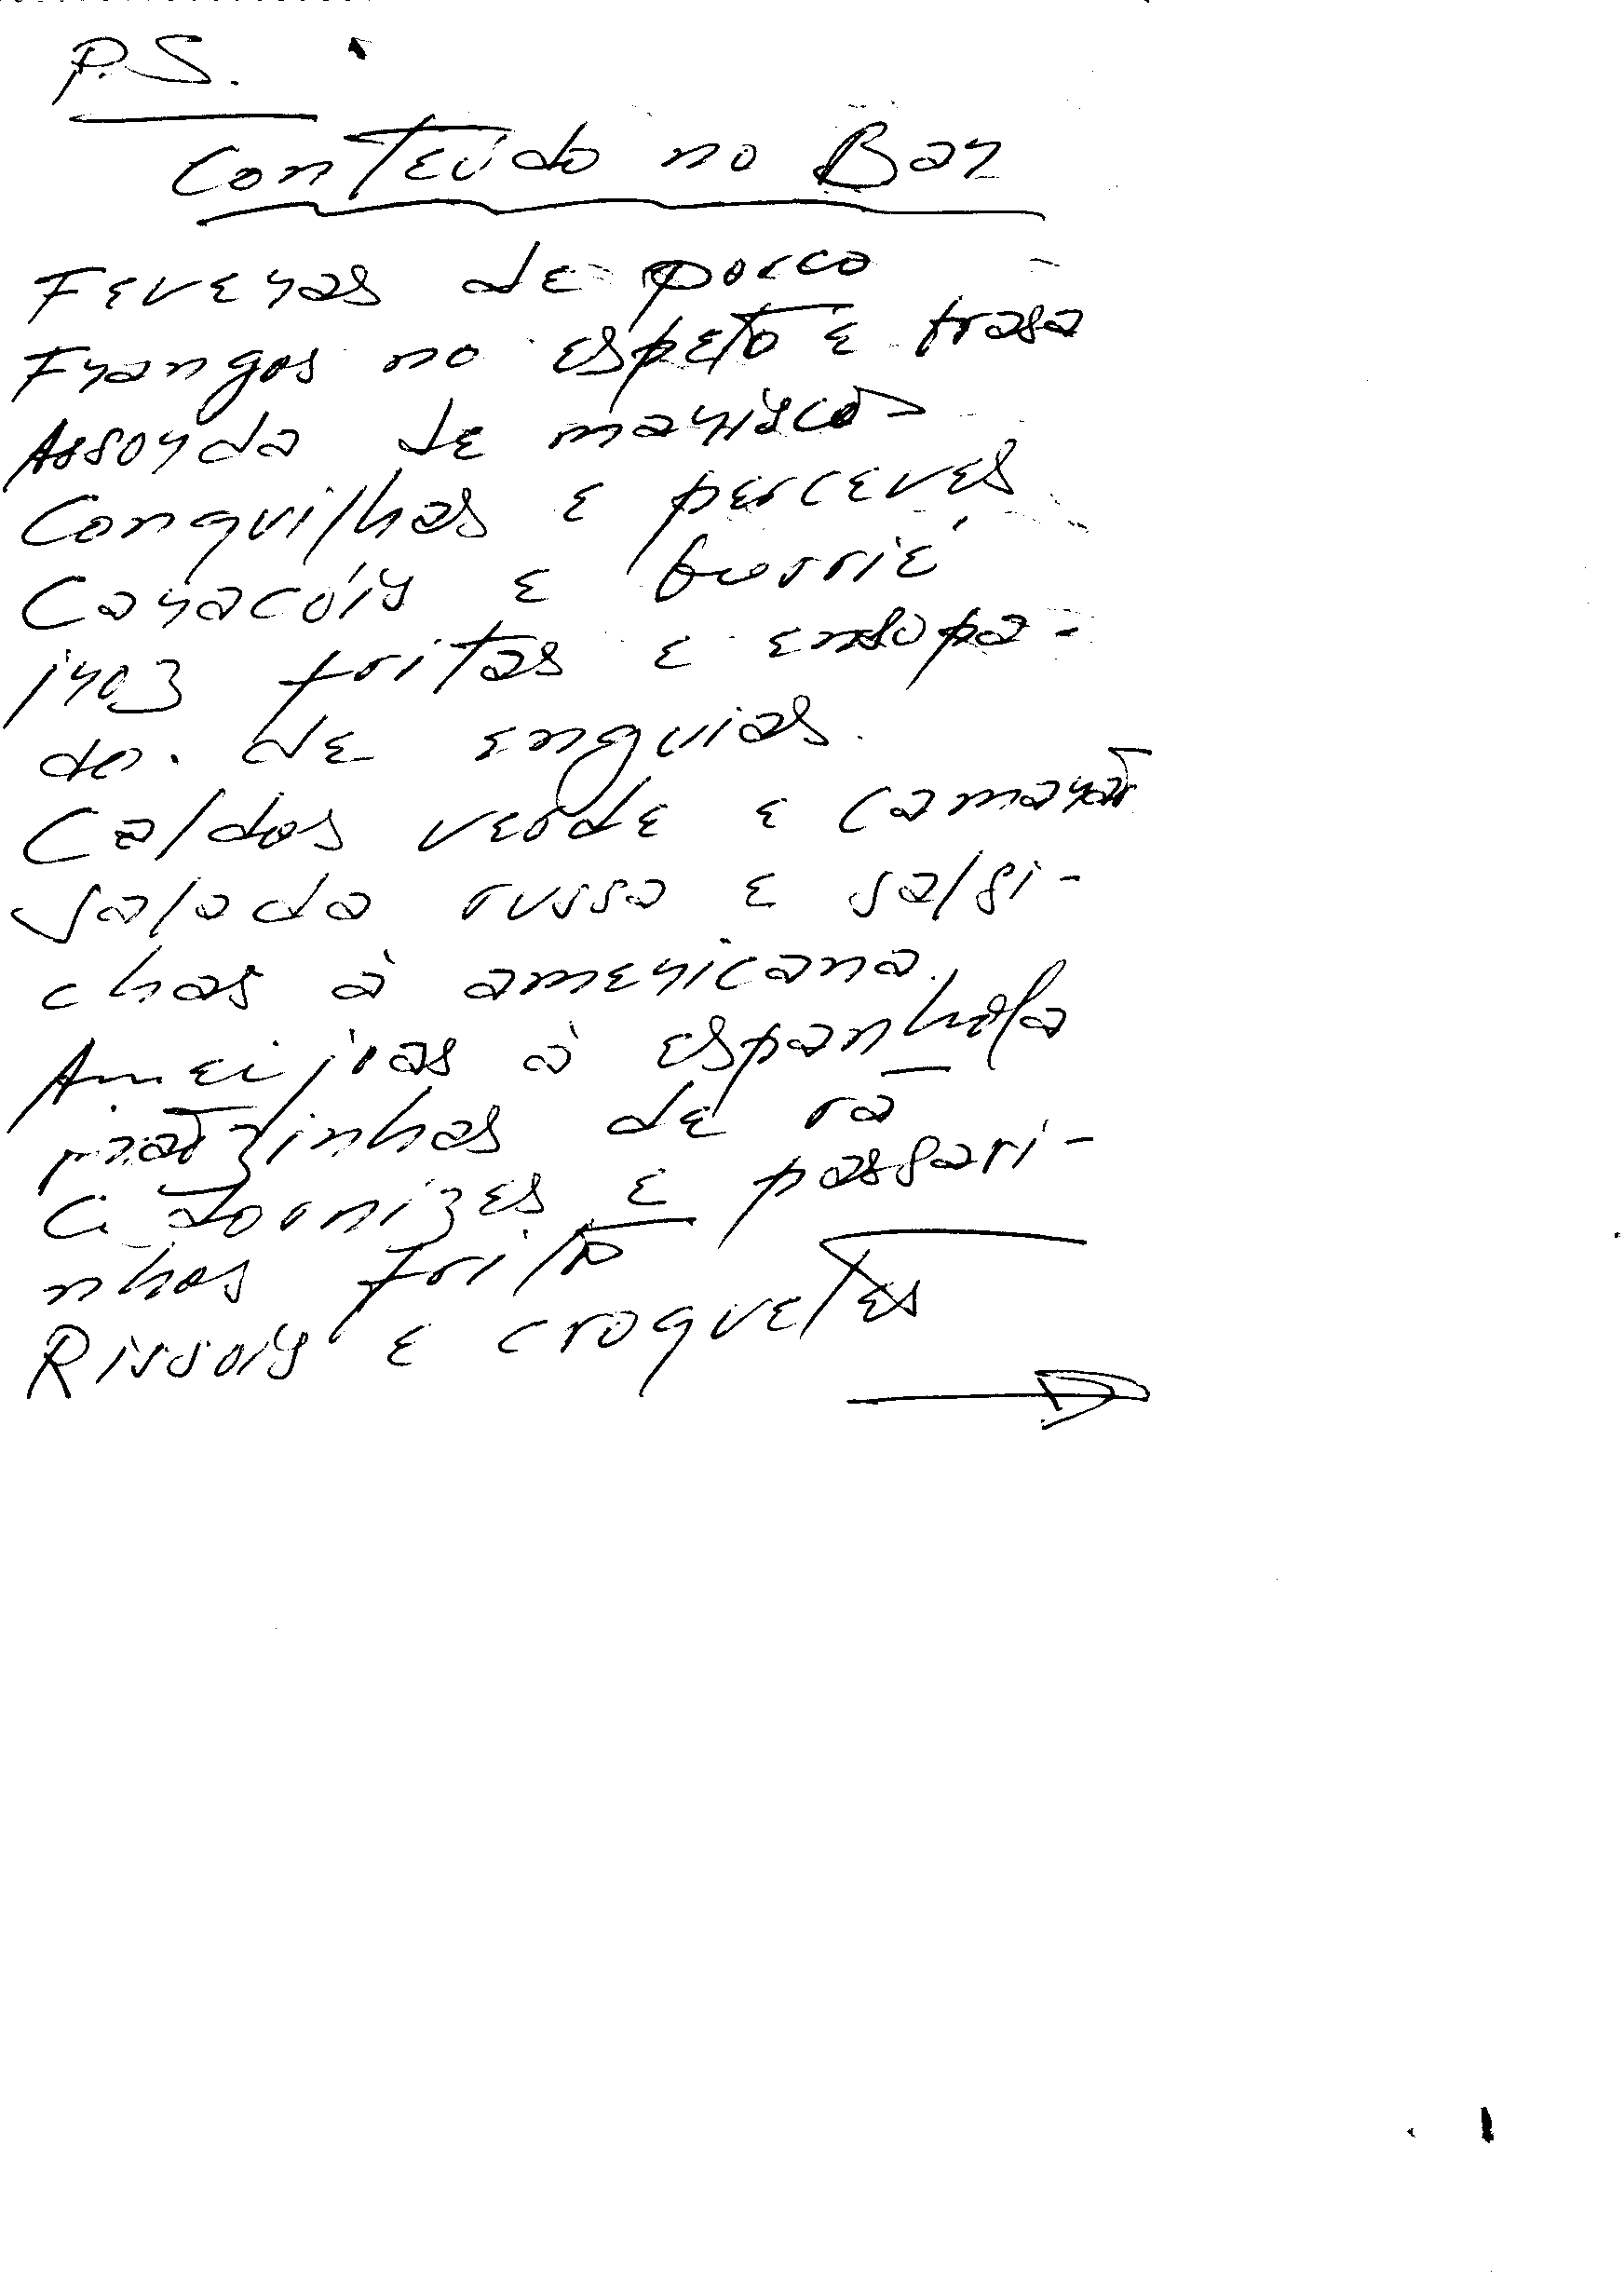 P.S.
Conteúdo no Bar
Feveras de porco
Frangos no espeto e brasa
Assorda de mariscos
Conquilhas e perceves
Caracóis e burrié
iroz fritas e ensopa-
do. de enguias.
Caldos verde e camarão
Salada russa e salsi-
chas à americana.
Ameijoas à espanhola
mãozinhas de rã
Cidornizes e passari-
nhos frito
Rissois e croquetes